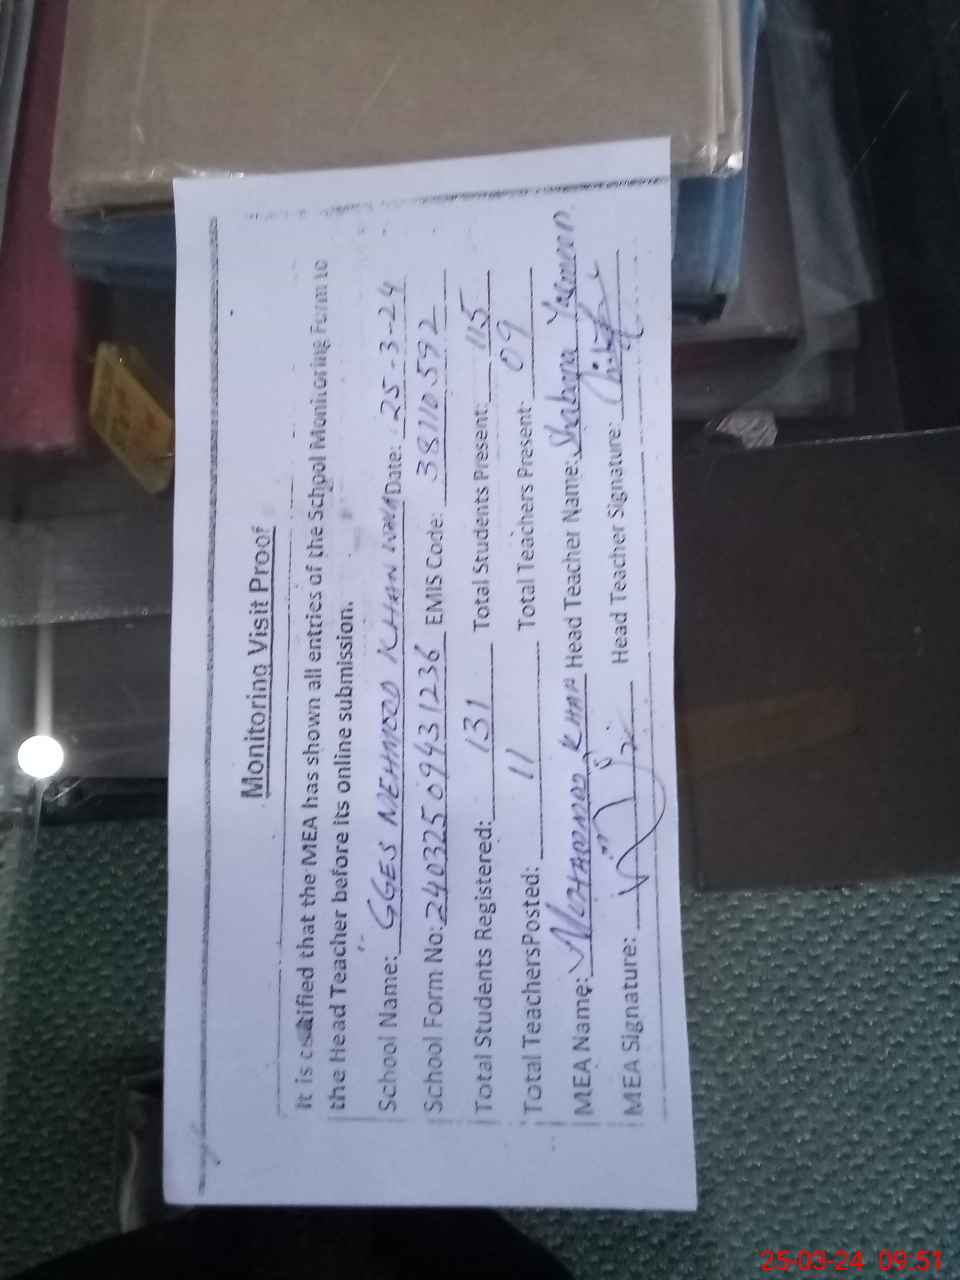 Monitoring Visit Proof
It is certified that the MEA has shown all entries of the School Monitoring Form to
the Head Teacher before its online submission.
School Name: GGES MEHMOOD KHAN WALA Date: 25-3-24
School Form No: 240325 0943 1236 EMIS Code: 38110592
Total Students Registered: 131 Total Students Present: 115
Total TeachersPosted: 11 Total Teachers Present: 09
MEA Name: Mohammad Khan Head Teacher Name: Shahena Yasmeen
MEA Signature: Head Teacher Signature:
25-03-24 09:51